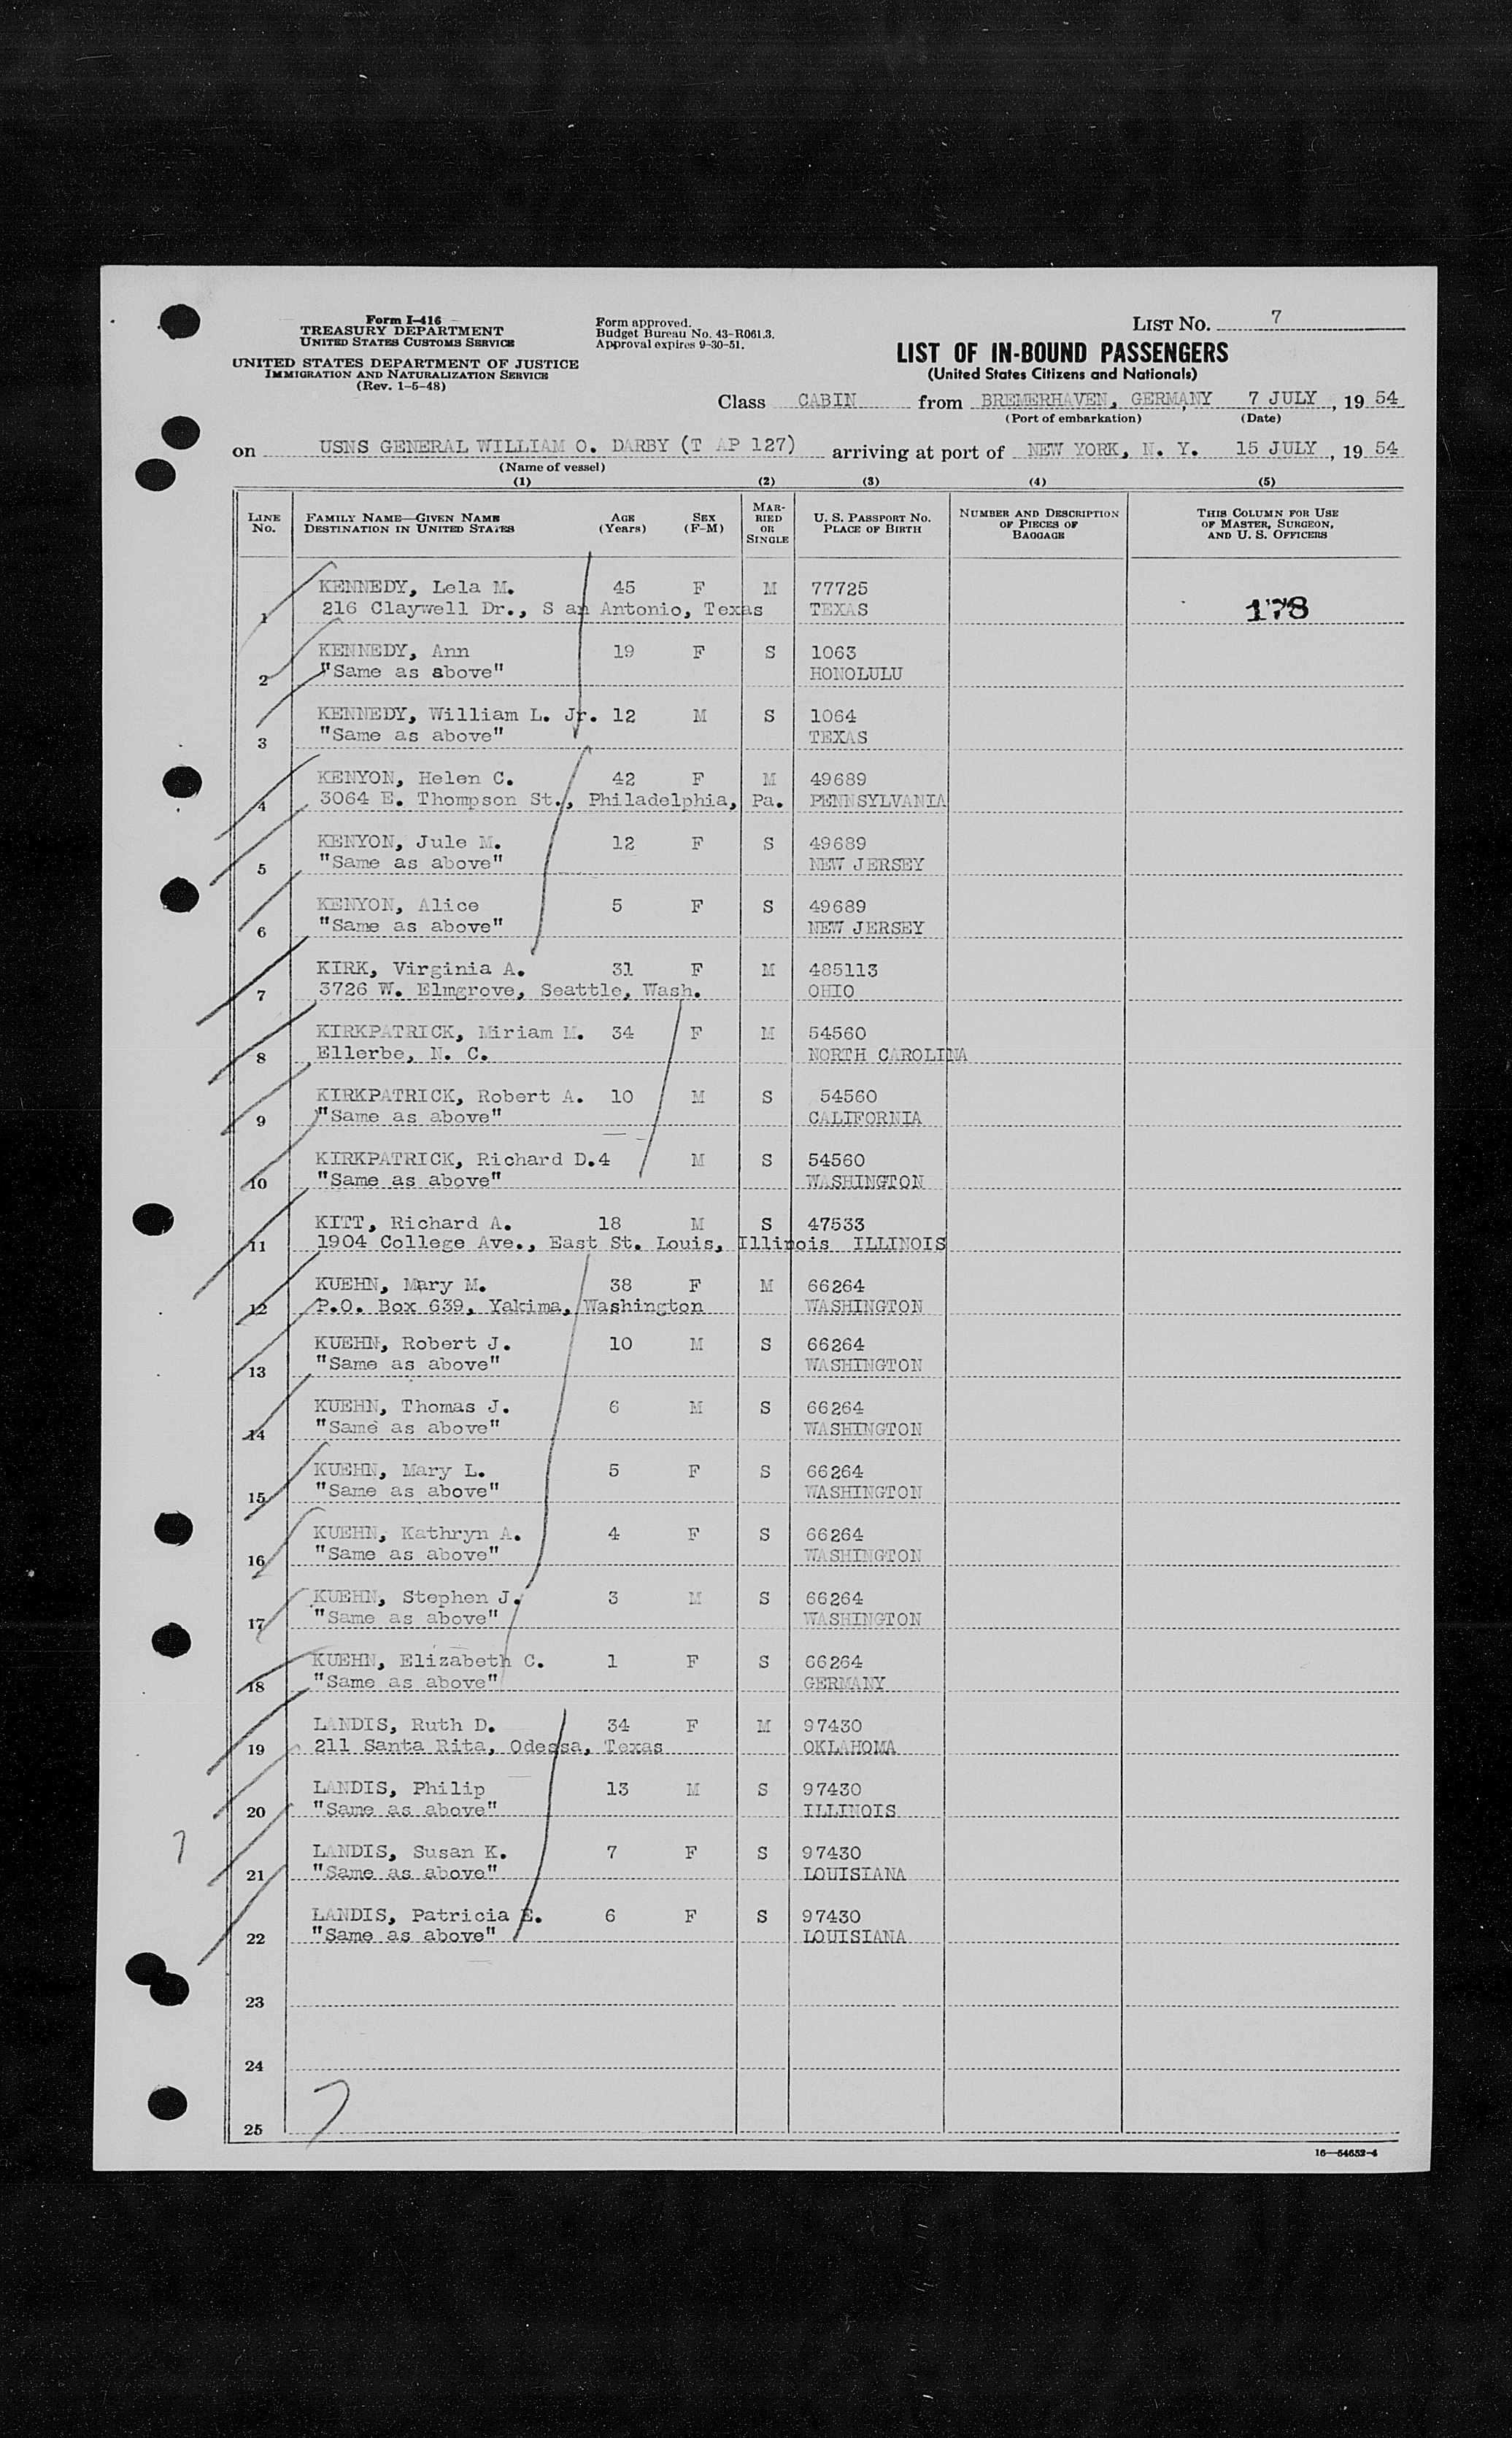 Form I-416
TREASURY DEPARTMENT
UNITED STATES CUSTOMS SERVICE
UNITED STATES DEPARTMENT OF JUSTICE
IMMIGRATION AND NATURALIZATION SERVICE
(Rev. 1-5-48)
Form approved.
Budget Bureau No. 43-R061.3.
Approval expires 9-30-51.
LIST NO. 7
LIST OF IN-BOUND PASSENGERS
(United States Citizens and Nationals)
Class CABIN from BREMERHAVEN, GERMANY 7 JULY, 19 54
(Port of embarkation) (Date)
on USNS GENERAL WILLIAM O. DARBY (T AP 127) arriving at port of NEW YORK, N. Y. 15 JULY, 19 54
(Name of vessel)
(1) (2) (3) (4) (5)
LINE NO. FAMILY NAME—GIVEN NAME DESTINATION IN UNITED STATES AGE (Years) SEX (F-M) MARRIED OR SINGLE U. S. PASSPORT NO. PLACE OF BIRTH NUMBER AND DESCRIPTION OF PIECES OF BAGGAGE THIS COLUMN FOR USE OF MASTER, SURGEON, AND U. S. OFFICERS
KENNEDY, Lela M. 45 F M 77725
1 216 Claywell Dr., S an Antonio, Texas TEXAS 178
KENNEDY, Ann 19 F S 1063
2 "Same as above" HONOLULU
KENNEDY, William L. Jr. 12 M S 1064
3 "Same as above" TEXAS
KENYON, Helen C. 42 F M 49689
4 3064 E. Thompson St., Philadelphia, Pa. PENNSYLVANIA
KENYON, Jule M. 12 F S 49689
5 "Same as above" NEW JERSEY
KENYON, Alice 5 F S 49689
6 "Same as above" NEW JERSEY
KIRK, Virginia A. 31 F M 485113
7 3726 W. Elmgrove, Seattle, Wash. OHIO
KIRKPATRICK, Miriam M. 34 F M 54560
8 Ellerbe, N. C. NORTH CAROLINA
KIRKPATRICK, Robert A. 10 M S 54560
9 "Same as above" CALIFORNIA
KIRKPATRICK, Richard D.4 M S 54560
10 "Same as above" WASHINGTON
KITT, Richard A. 18 M S 47533
11 1904 College Ave., East St. Louis, Illinois ILLINOIS
KUEHN, Mary M. 38 F M 66264
12 P.O. Box 639, Yakima, Washington WASHINGTON
KUEHN, Robert J. 10 M S 66264
13 "Same as above" WASHINGTON
KUEHN, Thomas J. 6 M S 66264
14 "Same as above" WASHINGTON
KUEHN, Mary L. 5 F S 66264
15 "Same as above" WASHINGTON
KUEHN, Kathryn A. 4 F S 66264
16 "Same as above" WASHINGTON
KUEHN, Stephen J. 3 M S 66264
17 "Same as above" WASHINGTON
KUEHN, Elizabeth C. 1 F S 66264
18 "Same as above" GERMANY
LANDIS, Ruth D. 34 F M 97430
19 211 Santa Rita, Odessa, Texas OKLAHOMA
LANDIS, Philip 13 M S 97430
20 "Same as above" ILLINOIS
LANDIS, Susan K. 7 F S 97430
21 "Same as above" LOUISIANA
LANDIS, Patricia E. 6 F S 97430
22 "Same as above" LOUISIANA
23
24
25
16—54652-4